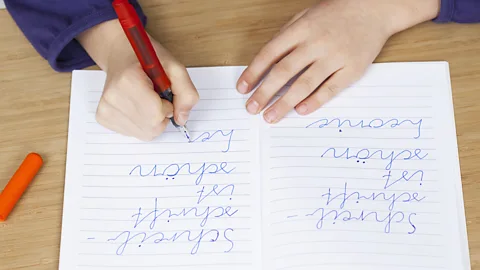 Schreib-
schrift
ist
schön
Schreib-
schrift
ist
schön